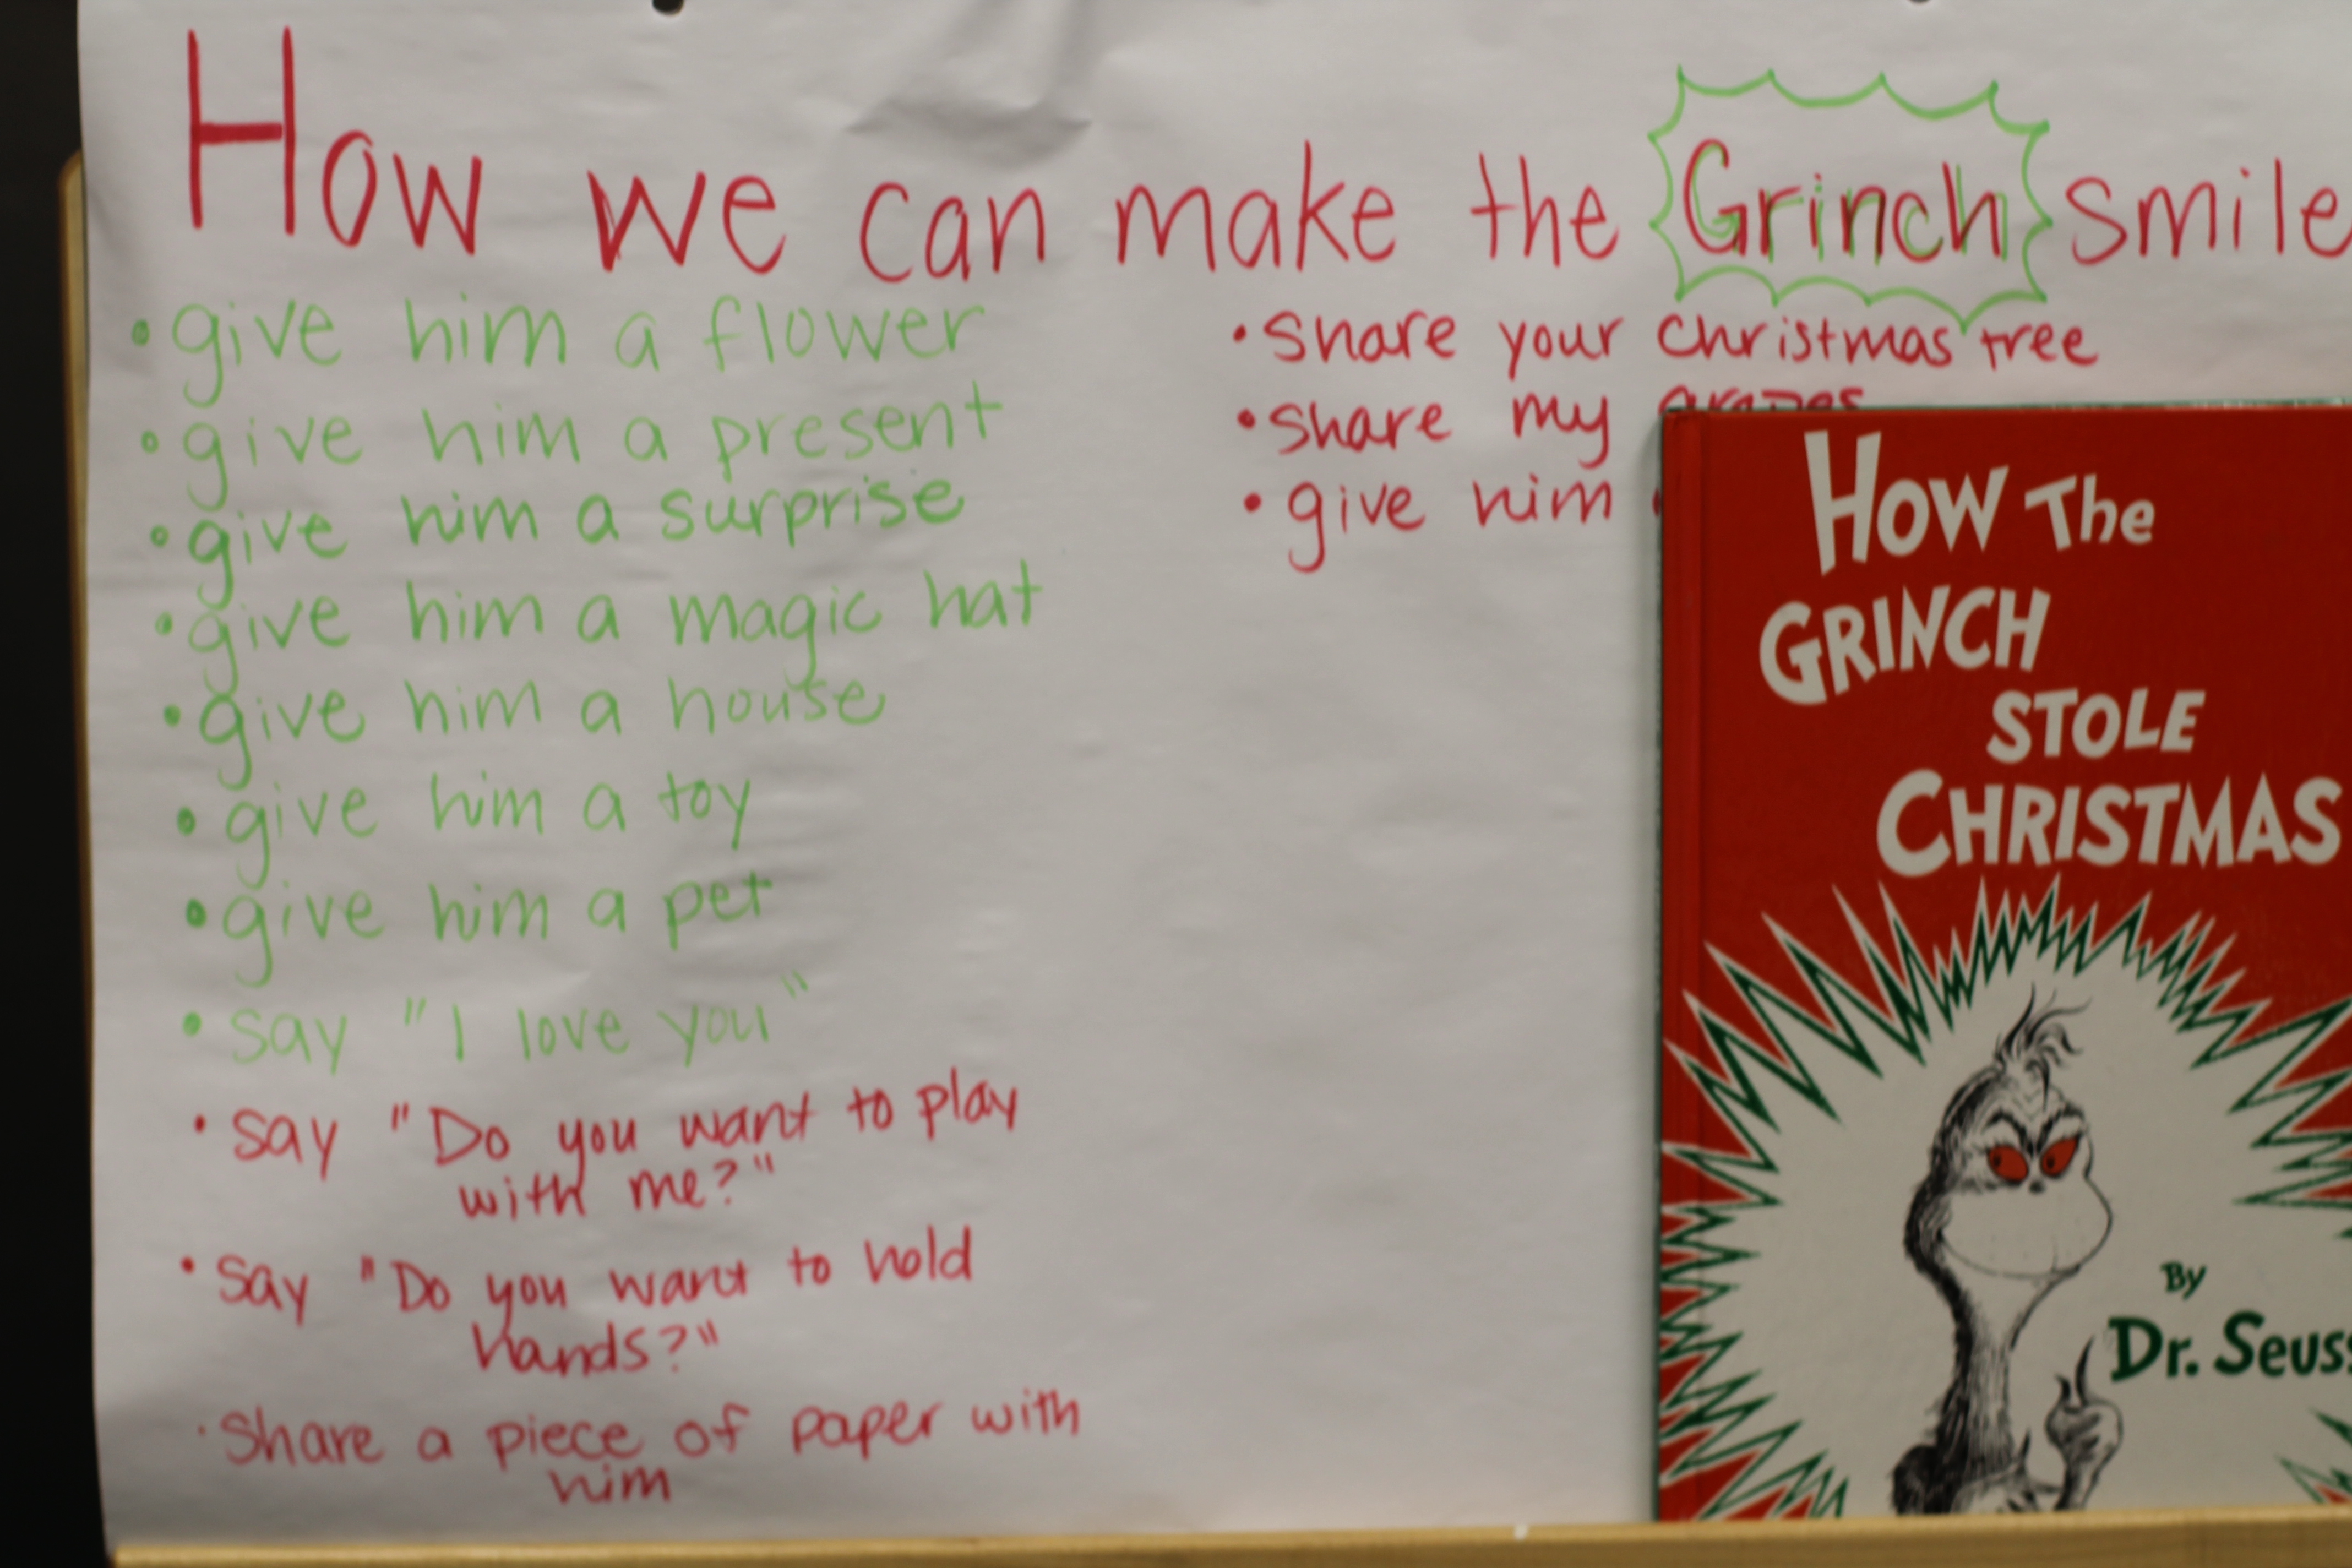 How we can make the Grinch smile
• give him a flower
• give him a present
• give him a surprise
• give him a magic hat
• give him a house
• give him a toy
• give him a pet
• say "I love you"
• say "Do you want to play
with me?"
• say "Do you want to hold
hands?"
• Share a piece of paper with
him
• share your Christmas tree
• share my grapes
• give him
How The
GRINCH
STOLE
CHRISTMAS
By
Dr. Seuss